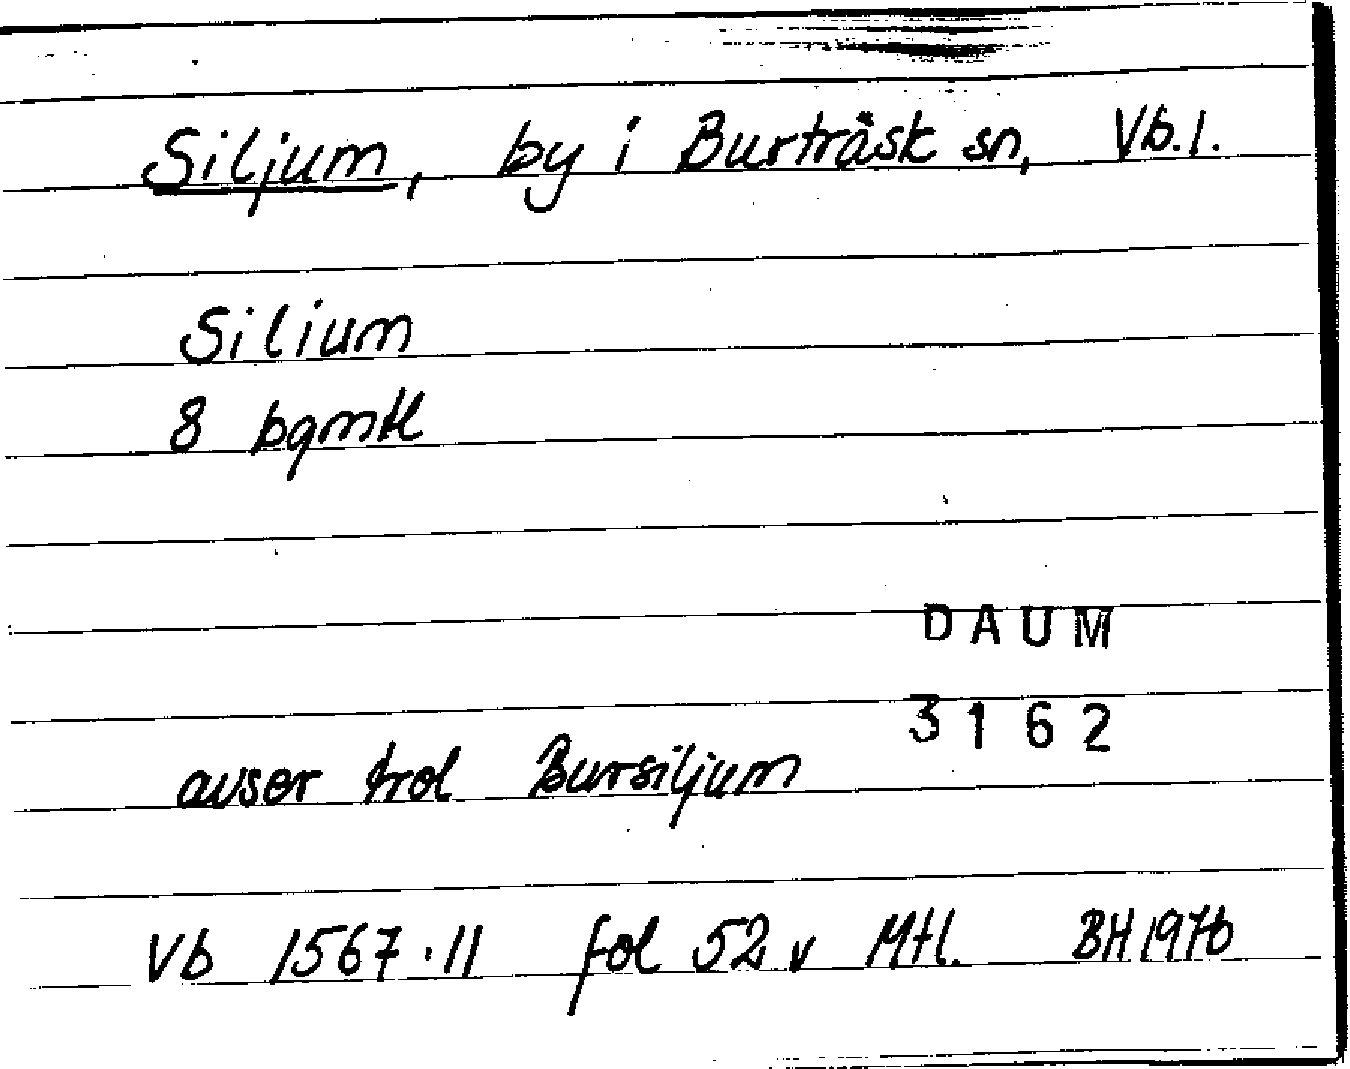 Siljum, by i Burträsk sn, Vb.l.
Silium
8 pgmtl
DAUM
3162
avser trol Bursiljum
Vb 1567:11 fol 52 v Mtl. BH 1976